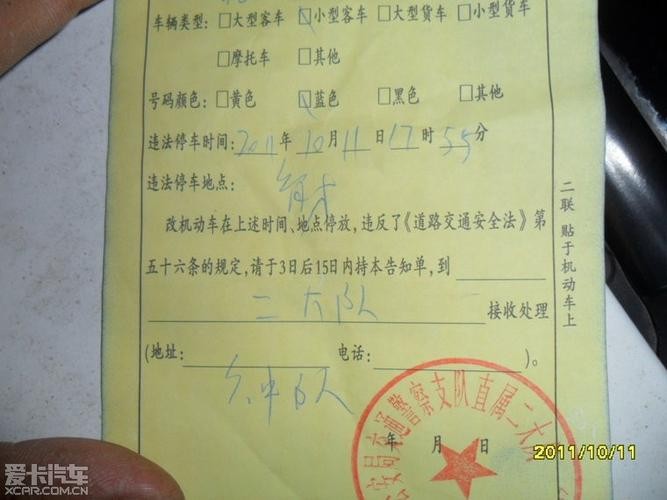 车辆类型:□大型客车 □小型客车 □大型货车 □小型货车
□摩托车 □其他
号码颜色:□黄色 □蓝色 □黑色 □其他
违法停车时间:2011年10月11日17时55分
违法停车地点:
改机动车在上述时间、地点停放,违反了《道路交通安全法》第
五十六条的规定,请于3日后15日内持本告知单,到
二大队 接收处理
(地址: 电话: )。
中队
年 月 日
通警察支队直属二大队
二联 贴于机动车上
2011/10/11
爱卡汽车
XCAR.COM.CN